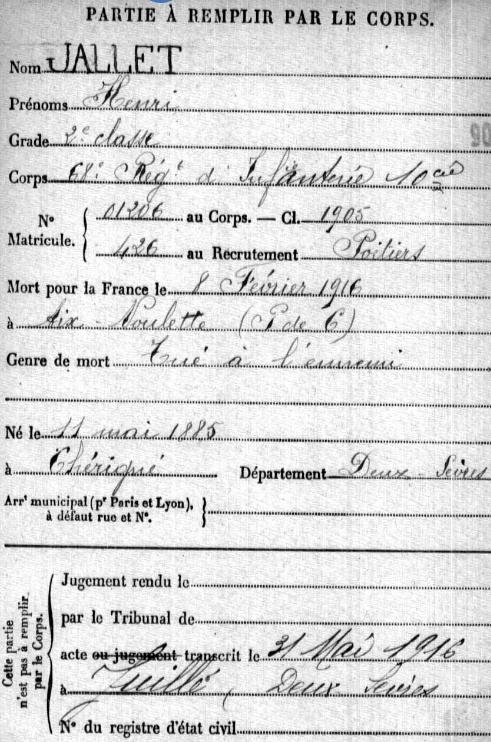 PARTIE À REMPLIR PAR LE CORPS.
Nom JALLET
Prénoms Henri
Grade 2e classe
90
Corps 68e Régt d'Infanterie 10e Cie
N° Matricule. 01206 au Corps. — Cl. 1905
426 au Recrutement Poitiers
Mort pour la France le 8 Février 1916
à Aix-Noulette (P de C)
Genre de mort Tué à l'ennemi
Né le 11 mai 1885
à Chérigné Département Deux-Sèvres
Arrt municipal (pr Paris et Lyon), à défaut rue et N°.
Cette partie n'est pas à remplir par le Corps.
Jugement rendu le
par le Tribunal de
acte ou jugement transcrit le 31 Mai 1916
à Juillé (Deux Sèvres
N° du registre d'état civil